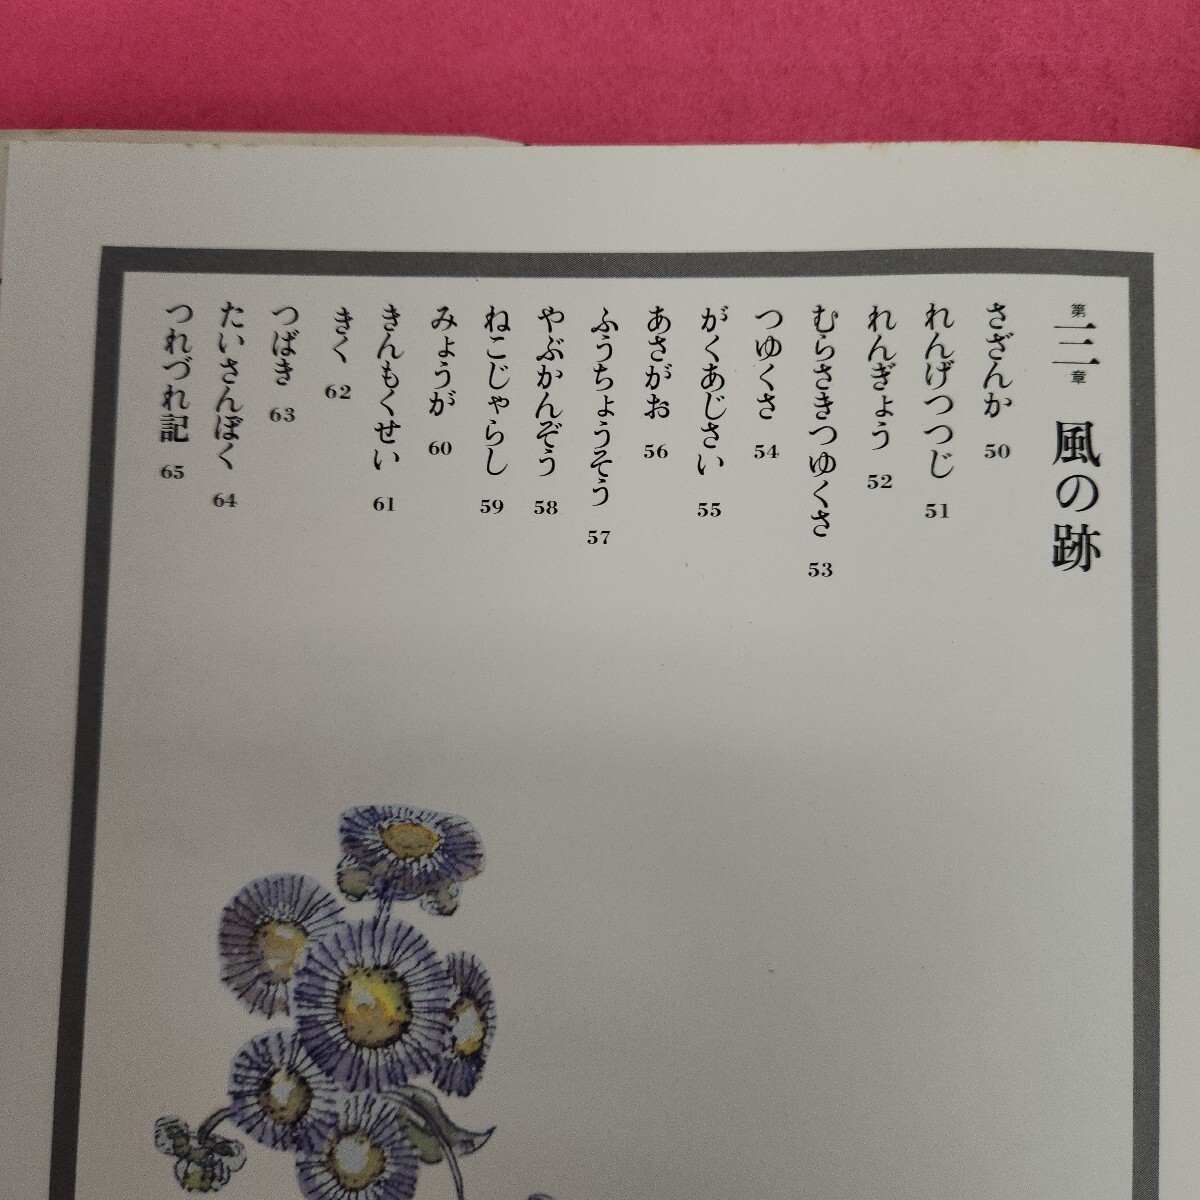 第三章 風の跡
さざんか 50
れんげつつじ 51
れんぎょう 52
むらさきつゆくさ 53
つゆくさ 54
がくあじさい 55
あさがお 56
ふうちょうそう 57
やぶかんぞう 58
ねこじゃらし 59
みょうが 60
きんもくせい 61
きく 62
つばき 63
たいさんぼく 64
つれづれ記 65